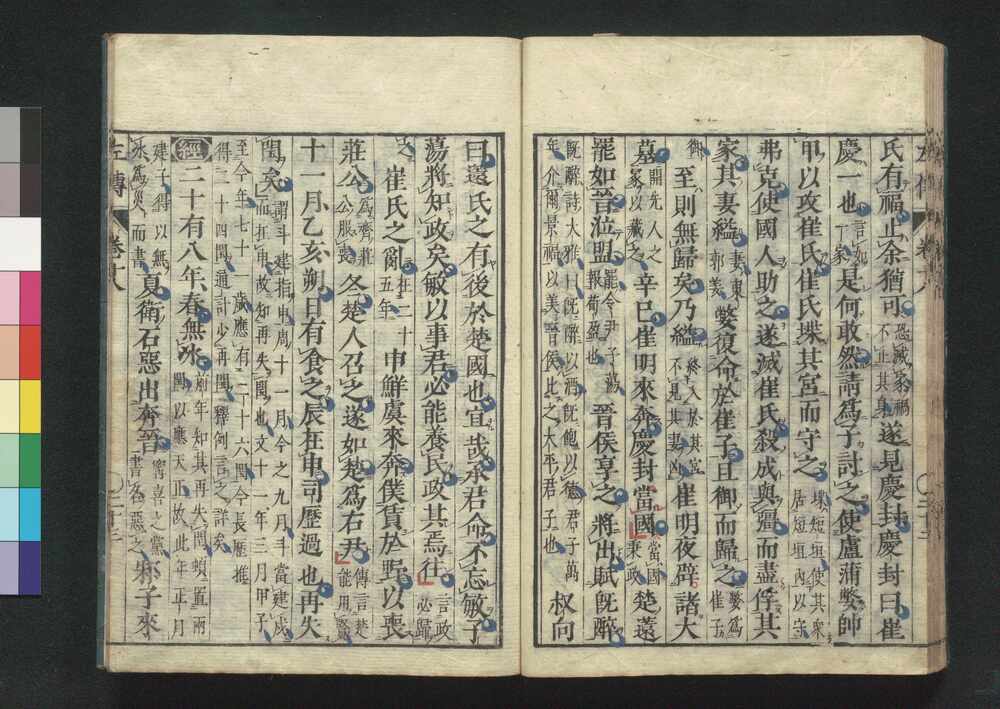 氏有福止余猶可恐滅家禍不止其身遂見慶封慶封曰崔
慶一也言如一家是何敢然請為子討之使盧蒲嫳帥
甲以攻崔氏崔氏堞其宮而守之堞短垣使其眾居短垣內以守
弗克使國人助之遂滅崔氏殺成與彊而盡俘其
家其妻縊妻東郭姜嫳復命於崔子且御而歸之嫳為崔子御
至則無歸矣乃縊終入於其宮不見其妻凶崔明夜辟諸大
墓開先人之冢以藏之辛巳崔明來奔慶封當國當國秉政楚薳
罷如晉涖盟罷令尹子蕩報荀盈也晉侯享之將出賦既醉
既醉詩大雅曰既醉以酒既飽以德君子萬年介爾景福以美晉侯比之大平君子也叔向
曰薳氏之有後於楚國也宜哉承君命不忘敏子
蕩將知政矣敏以事君必能養民政其焉往言政必歸之
崔氏之亂在二十五年申鮮虞來奔僕賃於野以喪
莊公為齊莊公服喪冬楚人召之遂如楚為右尹傳言楚能用賢
十一月乙亥朔日有食之辰在申司歷過也再失
閏矣謂斗建指申周十一月今之九月斗當建戌而在申故知再失閏也文十一年三月甲子
至今年七十一歲應有二十六閏今長歷推得二十四閏通計少再閏釋例言之詳矣
經二十有八年春無冰前年知其再失閏頓置兩閏以應天正故此年正月
建子得以無冰為災而書夏衛石惡出奔晉甯喜之黨書名惡之邾子來
左傳 卷十八